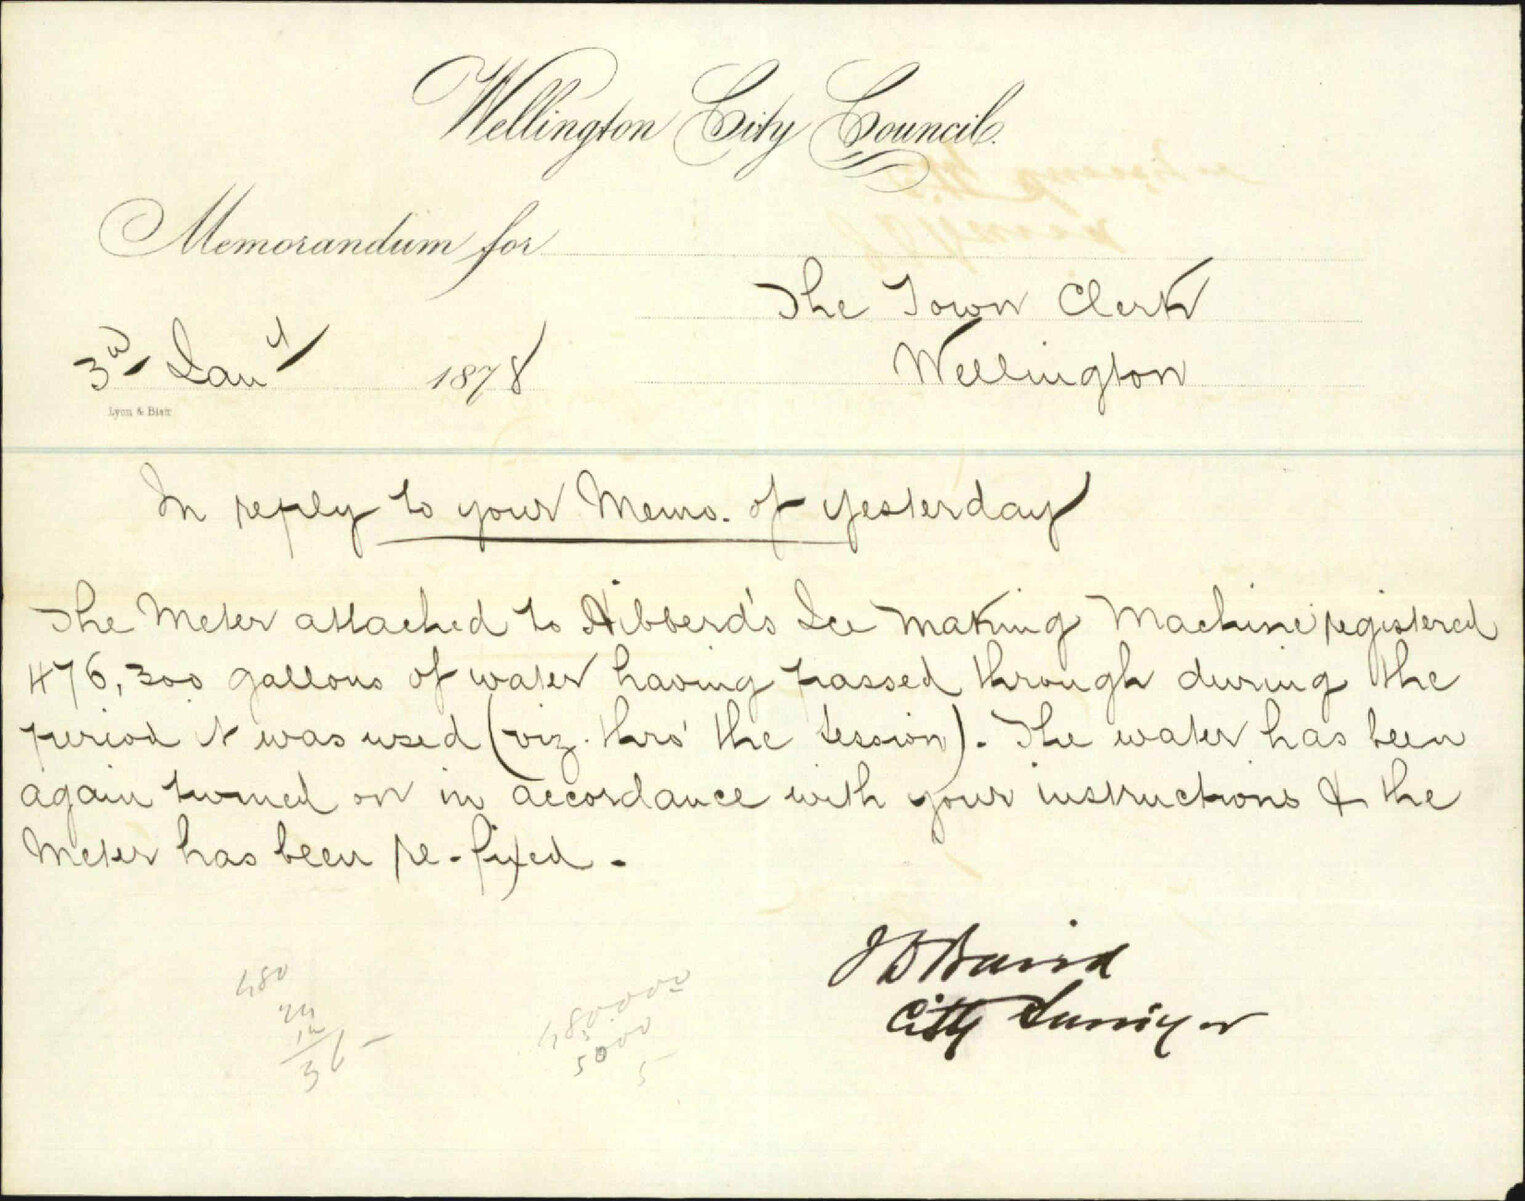 Wellington City Council.
Memorandum for
The Town Clerk
Wellington
3rd Jany 1878
Lyon & Blair
In reply to your Memo. of yesterday
The Meter attached to Hibberd's Ice Making Machine registered
476,300 gallons of water having passed through during the
period it was used (viz. thro' the session). The water has been
again turned on in accordance with your instructions & the
Meter has been re-fixed.
J D Baird
City Surveyor
480
24
12
36-
480.000
5000
5